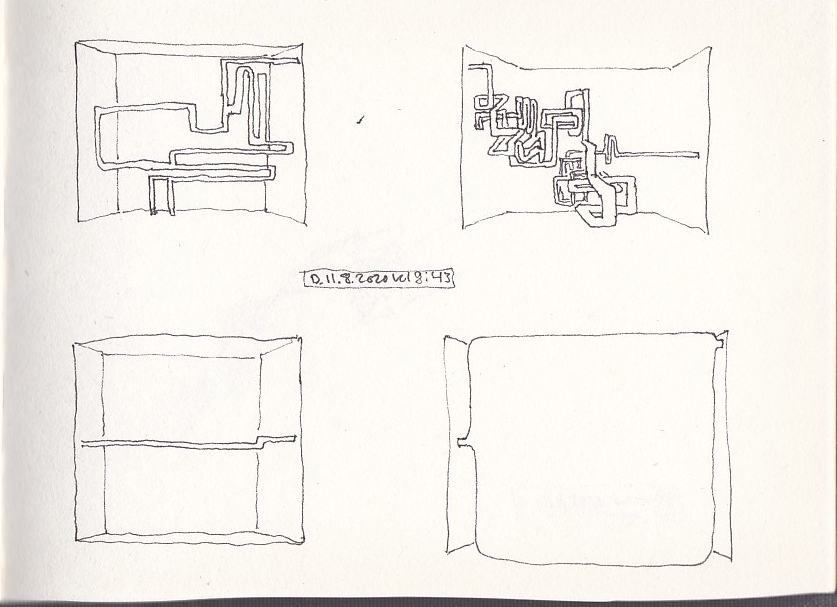 D.11.8.2020 kl 8:43